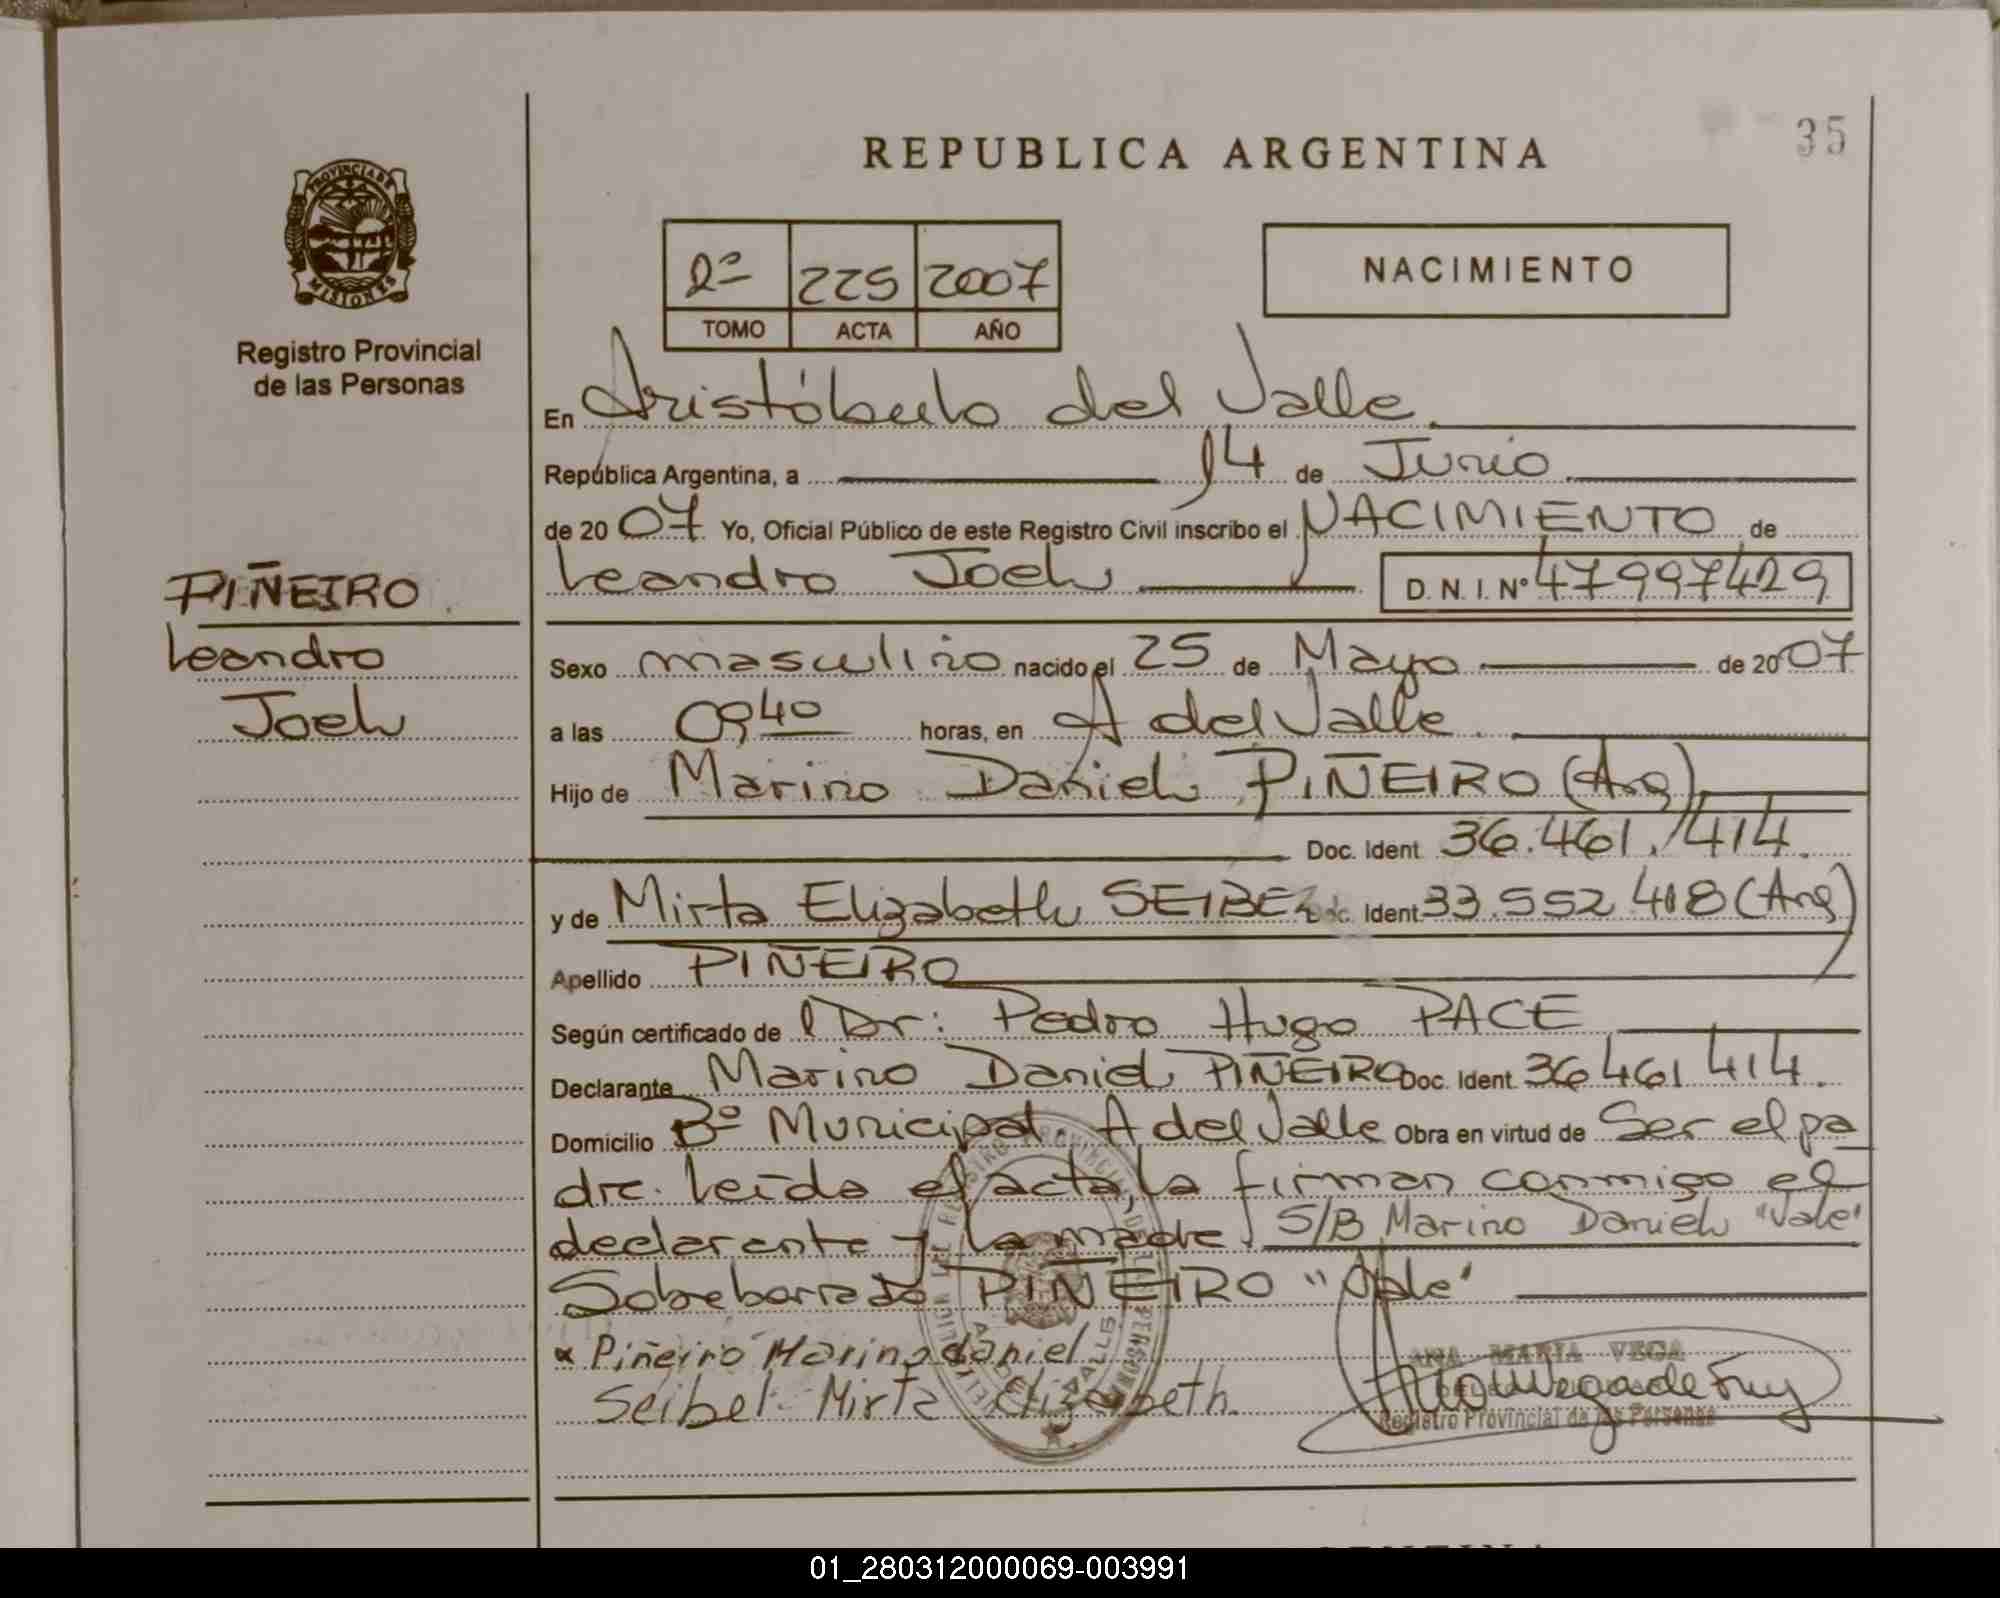 REPUBLICA ARGENTINA
35
PROVINCIA DE
MISIONES
Registro Provincial
de las Personas
2º 225 2007
TOMO ACTA AÑO
NACIMIENTO
En Aristóbulo del Valle
República Argentina, a 14 de Junio
de 2007 Yo, Oficial Público de este Registro Civil inscribo el NACIMIENTO de
Leandro Joel D. N. I. Nº 47997429
PIÑEIRO
Leandro
Joel
Sexo masculino nacido el 25 de Mayo de 2007
a las 09,40 horas, en A del Valle
Hijo de Marino Daniel PIÑEIRO (Arg)
Doc. Ident 36.461.414.
y de Mirta Elizabeth SEIBEL Doc. Ident 33.552 418 (Arg)
Apellido PIÑEIRO
Según certificado de Dr: Pedro Hugo PACE
Declarante Marino Daniel PIÑEIRO Doc. Ident. 36 461 414.
Domicilio Bº Municipal. A del Valle Obra en virtud de Ser el pa
dre. Leída el acta, la firman conmigo el
declarante y la madre. S/B Marino Daniel "Vale"
Sobreborrado PIÑEIRO "Vale"
x Piñeiro Marino daniel
Seibel Mirta Elizabeth.
ANA MARIA VEGA
Registro Provincial de las Personas
01_280312000069-003991